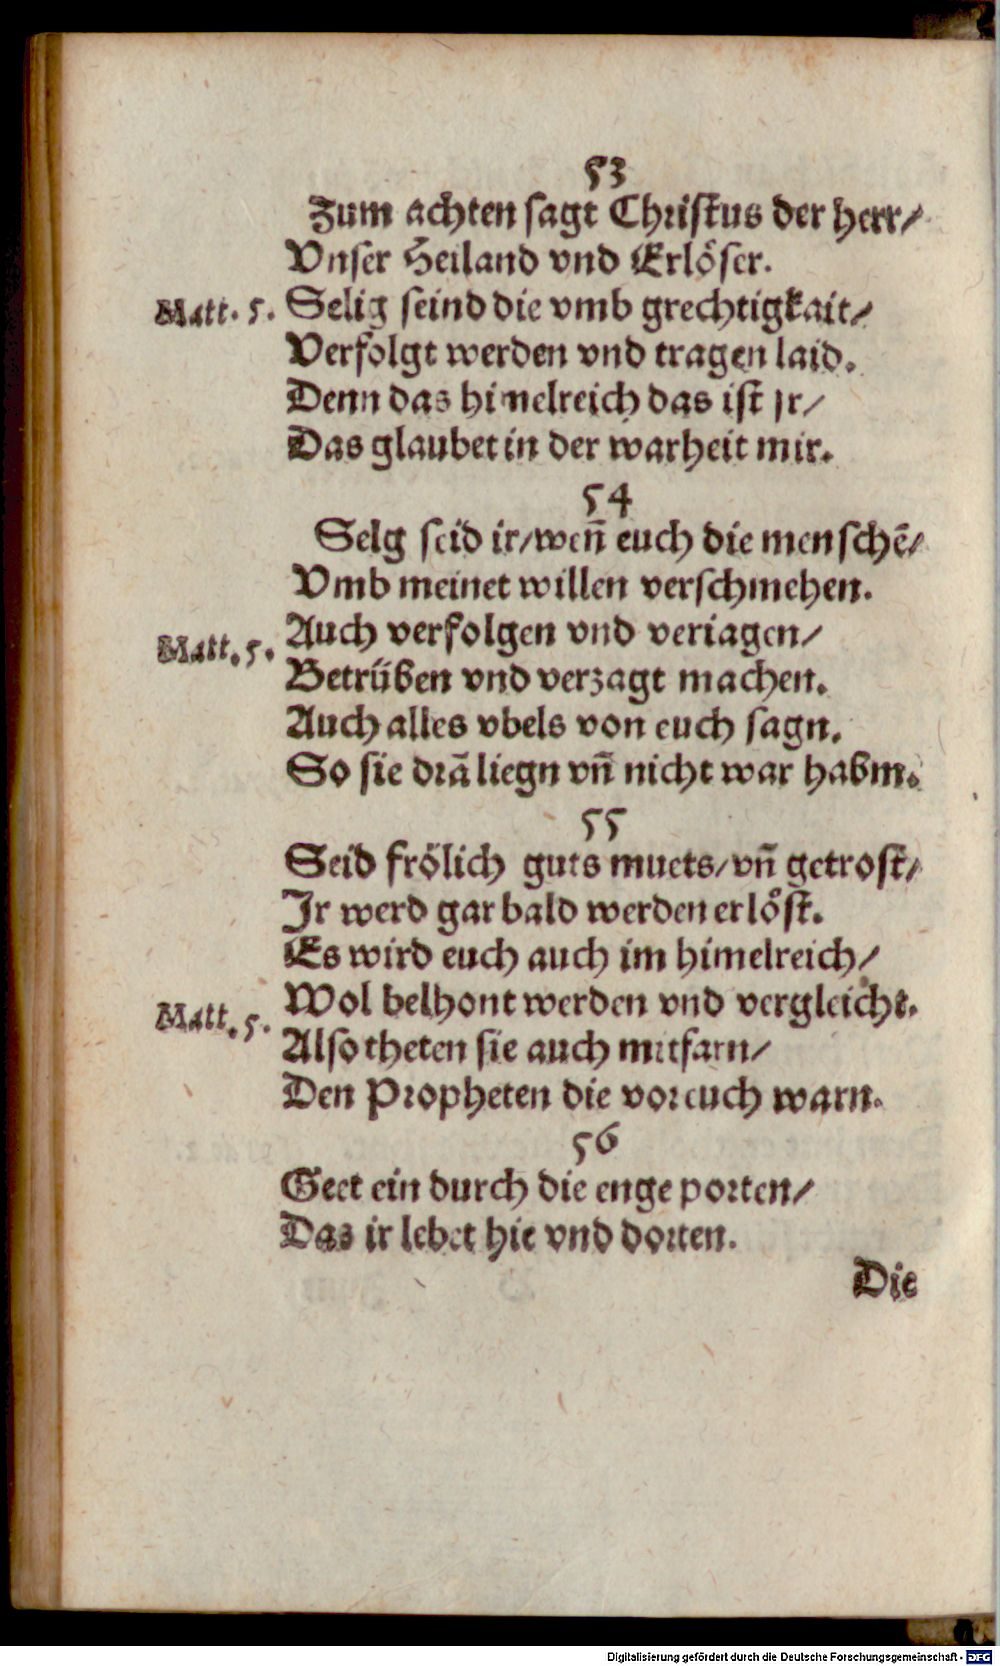 53
Zum achten sagt Christus der herr/
Vnser Heiland vnd Erlöser.
Matt. 5. Selig seind die vmb grechtigkait/
Verfolgt werden vnd tragen laid.
Denn das himelreich das ist jr/
Das glaubet in der warheit mir.
54
Selg seid ir/wen̄ euch die menschē/
Vmb meinet willen verschmehen.
Matt. 5. Auch verfolgen vnd veriagen/
Betrüben vnd verzagt machen.
Auch alles vbels von euch sagn.
So sie drā liegn vn̄ nicht war habm.
55
Seid frölich guts muets/vn̄ getrost/
Jr werd gar bald werden erlöst.
Es wird euch auch im himelreich/
Matt. 5. Wol belhont werden vnd vergleicht.
Also theten sie auch mitfarn/
Den Propheten die vor euch warn.
56
Geet ein durch die enge porten/
Das ir lebet hie vnd dorten.
Die
Digitalisierung gefördert durch die Deutsche Forschungsgemeinschaft - DFG